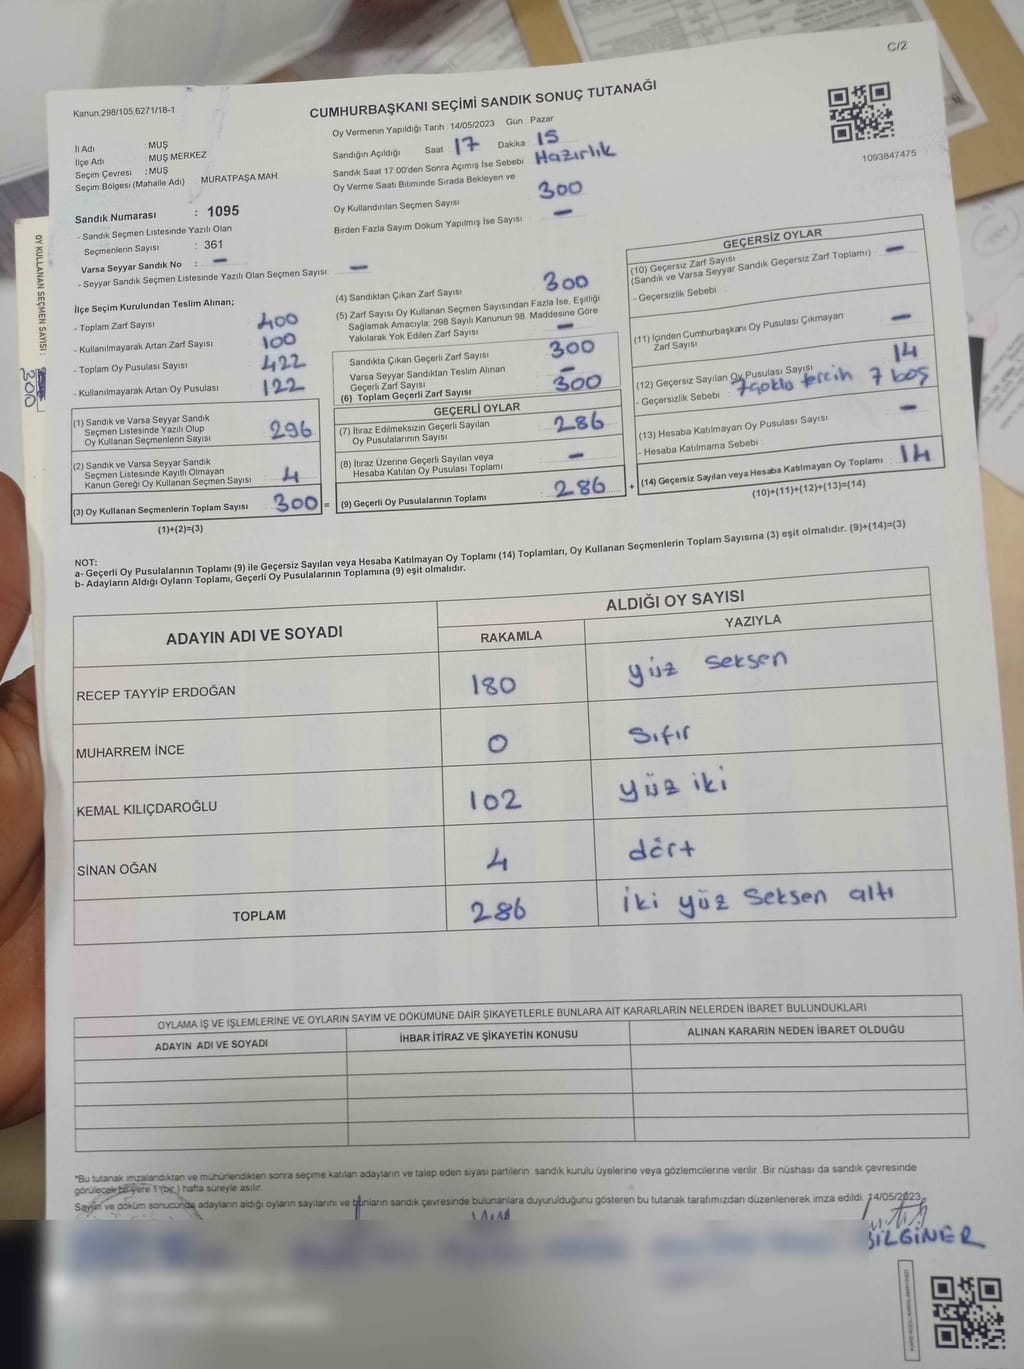 C/2
Kanun,298/105,6271/18-1
CUMHURBAŞKANI SEÇİMİ SANDIK SONUÇ TUTANAĞI
Oy Vermenin Yapıldığı Tarih 14/05/2023 Gün Pazar
İl Adı : MUŞ
İlçe Adı : MUŞ MERKEZ
Seçim Çevresi : MUŞ
Seçim Bölgesi (Mahalle Adı) : MURATPAŞA MAH
Sandık Numarası : 1095
- Sandık Seçmen Listesinde Yazılı Olan
Seçmenlerin Sayısı : 361
Varsa Seyyar Sandık No : —
- Seyyar Sandık Seçmen Listesinde Yazılı Olan Seçmen Sayısı : —
Sandığın Açıldığı Saat 17 Dakika 15
Sandık Saat 17:00'den Sonra Açımış İse Sebebi Hazırlık
Oy Verme Saati Bitiminde Sırada Bekleyen ve
Oy Kullandırılan Seçmen Sayısı 300
Birden Fazla Sayım Döküm Yapılmış İse Sayısı : —
1093847475
OY KULLANAN SEÇMEN SAYISI :
300
İlçe Seçim Kurulundan Teslim Alınan;
- Toplam Zarf Sayısı : 400
- Kullanılmayarak Artan Zarf Sayısı : 100
- Toplam Oy Pusulası Sayısı : 422
- Kullanılmayarak Artan Oy Pusulası : 122
(1) Sandık ve Varsa Seyyar Sandık
Seçmen Listesinde Yazılı Olup
Oy Kullanan Seçmenlerin Sayısı : 296
(2) Sandık ve Varsa Seyyar Sandık
Seçmen Listesinde Kayıtlı Olmayan
Kanun Gereği Oy Kullanan Seçmen Sayısı : 4
(3) Oy Kullanan Seçmenlerin Toplam Sayısı : 300 =
(1)+(2)=(3)
(4) Sandıktan Çıkan Zarf Sayısı : 300
(5) Zarf Sayısı Oy Kullanan Seçmen Sayısından Fazla İse, Eşitliği
Sağlamak Amacıyla; 298 Sayılı Kanunun 98. Maddesine Göre
Yakılarak Yok Edilen Zarf Sayısı : —
Sandıkta Çıkan Geçerli Zarf Sayısı : 300
Varsa Seyyar Sandıktan Teslim Alınan
Geçerli Zarf Sayısı : —
(6) Toplam Geçerli Zarf Sayısı : 300
GEÇERLİ OYLAR
(7) İtiraz Edilmeksizin Geçerli Sayılan
Oy Pusulalarının Sayısı : 286
(8) İtiraz Üzerine Geçerli Sayılan veya
Hesaba Katılan Oy Pusulası Toplamı : —
(9) Geçerli Oy Pusulalarının Toplamı : 286 +
GEÇERSİZ OYLAR
(10) Geçersiz Zarf Sayısı : —
(Sandık ve Varsa Seyyar Sandık Geçersiz Zarf Toplamı)
- Geçersizlik Sebebi :
(11) İçinden Cumhurbaşkanı Oy Pusulası Çıkmayan
Zarf Sayısı : —
(12) Geçersiz Sayılan Oy Pusulası Sayısı : 14
- Geçersizlik Sebebi : 7 çoklu tercih 7 boş
(13) Hesaba Katılmayan Oy Pusulası Sayısı : —
- Hesaba Katılmama Sebebi :
(14) Geçersiz Sayılan veya Hesaba Katılmayan Oy Toplamı : 14
(10)+(11)+(12)+(13)=(14)
NOT:
a- Geçerli Oy Pusulalarının Toplamı (9) ile Geçersiz Sayılan veya Hesaba Katılmayan Oy Toplamı (14) Toplamları, Oy Kullanan Seçmenlerin Toplam Sayısına (3) eşit olmalıdır. (9)+(14)=(3)
b- Adayların Aldığı Oyların Toplamı, Geçerli Oy Pusulalarının Toplamına (9) eşit olmalıdır.
ADAYIN ADI VE SOYADI
ALDIĞI OY SAYISI
RAKAMLA YAZIYLA
RECEP TAYYİP ERDOĞAN 180 yüz seksen
MUHARREM İNCE 0 Sıfır
KEMAL KILIÇDAROĞLU 102 yüz iki
SİNAN OĞAN 4 dört
TOPLAM 286 iki yüz seksen altı
OYLAMA İŞ VE İŞLEMLERİNE VE OYLARIN SAYIM VE DÖKÜMÜNE DAİR ŞİKAYETLERLE BUNLARA AİT KARARLARIN NELERDEN İBARET BULUNDUKLARI
ADAYIN ADI VE SOYADI İHBAR İTİRAZ VE ŞİKAYETİN KONUSU ALINAN KARARIN NEDEN İBARET OLDUĞU
*Bu tutanak imzalandıktan ve mühürlendikten sonra seçime katılan adayların ve talep eden siyasi partilerin sandık kurulu üyelerine veya gözlemcilerine verilir. Bir nüshası da sandık çevresinde
görülecek bir yere 1 (bir) hafta süreyle asılır.
Sayım ve döküm sonucunda adayların aldığı oyların sayılarını ve bunların sandık çevresinde bulunanlara duyurulduğunu gösteren bu tutanak tarafımızdan düzenlenerek imza edildi. 14/05/2023
BİLGİNER